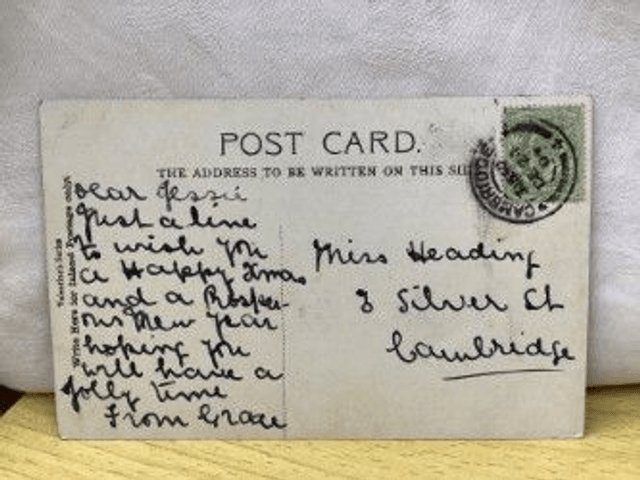 POST CARD.
THE ADDRESS TO BE WRITTEN ON THIS
Dear Jessie
Just a line
to wish you
a Happy Xmas
and a Prosper-
ous New Year
hoping you
will have a
Jolly time
From Grace
Valentine's Series
Write Here for Inland Postage only.
Miss Heading
3 Silver St
Cambridge
CAMBRIDGE